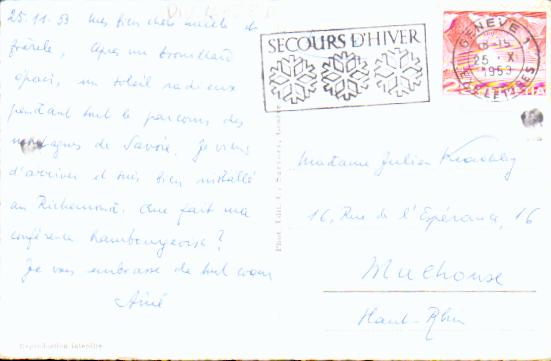 25.11.53 Mes bien chers
Après un brouillard
épais, un soleil radieux
pendant tout le parcours des
montagnes de Savoie. Je viens
d'arriver et suis bien installé
au Richemond. Que fait ma
conférence hambourgeoise ?
Je vous embrasse de tout coeur
Aimé
Reproduction interdite
SECOURS D'HIVER
GENEVE 1
18-15
25. X
1953
LETTRES
Madame Julien
16, Rue de l'Espérance, 16
Mulhouse
Haut-Rhin